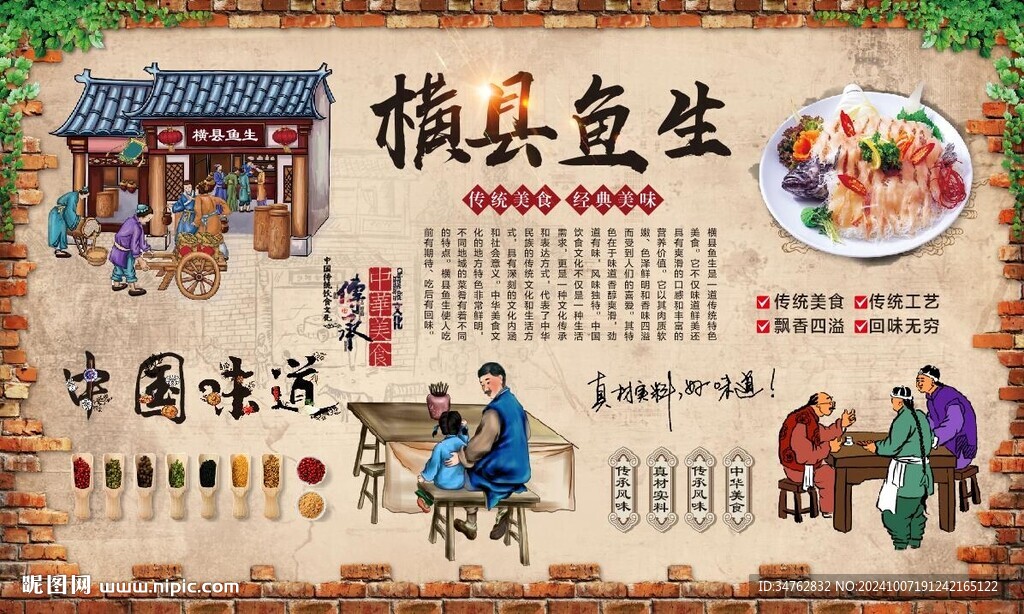 横县鱼生
横县鱼生
传统美食 经典美味
横县鱼生是一道传统特色
美食。它不仅味道鲜美还
具有爽滑的口感和丰富的
营养价值。它以其肉质软
嫩、色泽鲜明和香味四溢
而受到人们的喜爱。其特
色在于味道香醇爽滑，劲
道有味，风味独特。中国
饮食文化不仅是一种生活
需求，更是一种文化传承
和表达方式，代表了中华
民族的传统文化和生活方
式，具有深刻的文化内涵
和社会意义。中华美食文
化的地方特色非常鲜明，
不同地域的菜肴有着不同
的特点。横县鱼生使人吃
前有期待、吃后有回味。
中華美食
文化
傳承
中国传统饮食文化
传统美食 传统工艺
飘香四溢 回味无穷
中国味道
真材实料,好味道!
传承风味
真材实料
传承风味
中华美食
昵图网 www.nipic.com
ID:34762832 NO:20241007191242165122